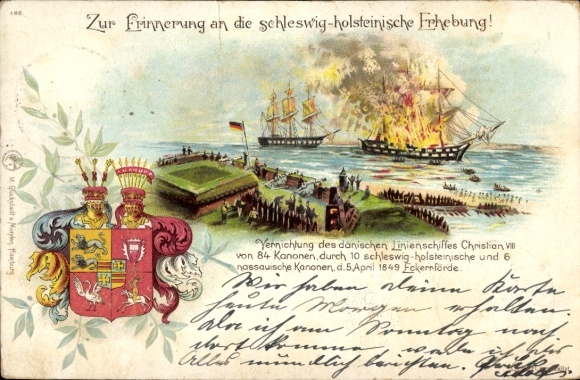 186.
Zur Erinnerung an die schleswig-holsteinische Erhebung!
Vernichtung des dänischen Linienschiffes Christian VIII
von 84 Kanonen, durch 10 schleswig-holsteinische und 6
nassauische Kanonen, d. 5. April 1849 Eckernförde.
Wir haben deine Karte
heute Morgen erhalten.
Da ich am Sonntag nach
dort komme werde ich dir
Alles mündlich berichten.